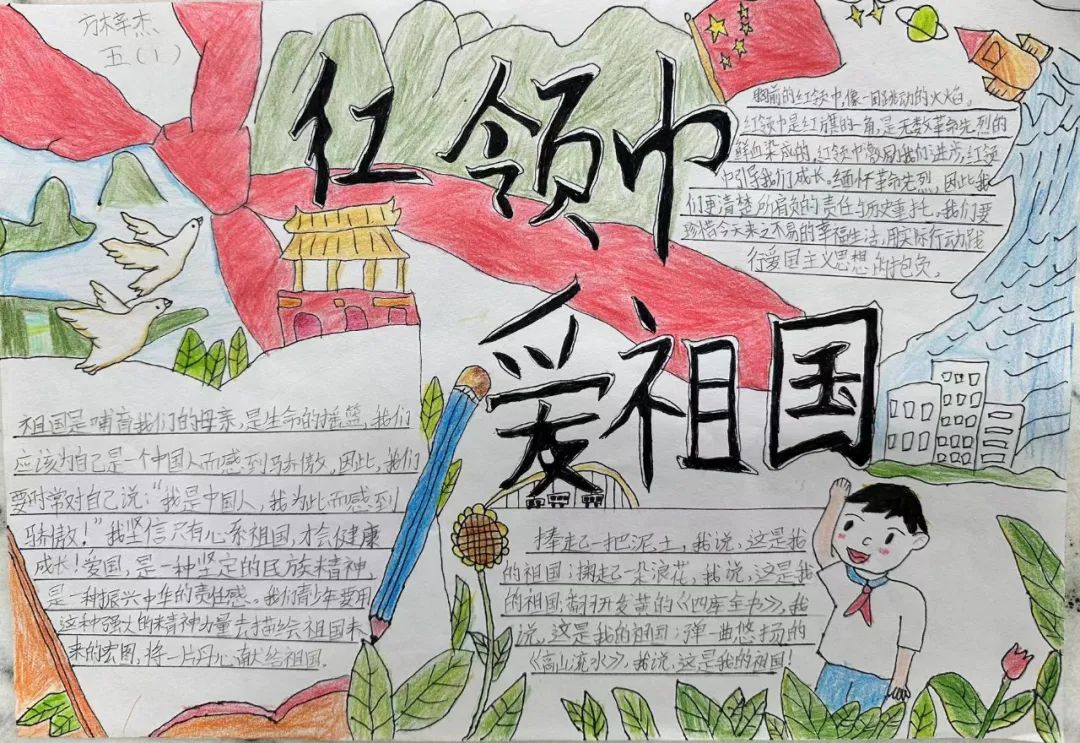 方梓杰
五(1)
红领巾
爱祖国
胸前的红领巾,像一团跳动的火焰。
红领巾是红旗的一角,是无数革命先烈的
鲜血染成的,红领巾激励我们进步,红领
巾引导我们成长。缅怀革命先烈,因此我
们更清楚所肩负的责任与历史重托。我们要
珍惜今天来之不易的幸福生活,用实际行动践
行爱国主义思想的抱负。
祖国是哺育我们的母亲,是生命的摇篮,我们
应该为自己是一个中国人而感到骄傲,因此,我们
要时常对自己说:“我是中国人,我为此而感到
骄傲!”我坚信只有心系祖国,才会健康
成长!爱国,是一种坚定的民族精神,
是一种振兴中华的责任感。我们青少年要用
这种强大的精神力量去描绘祖国未
来的宏图,将一片丹心献给祖国.
捧起一把泥土,我说,这是我
的祖国;掬起一朵浪花,我说,这是我
的祖国;翻开发黄的《四库全书》,我
说,这是我的祖国;弹一曲悠扬的
《高山流水》,我说,这是我的祖国!